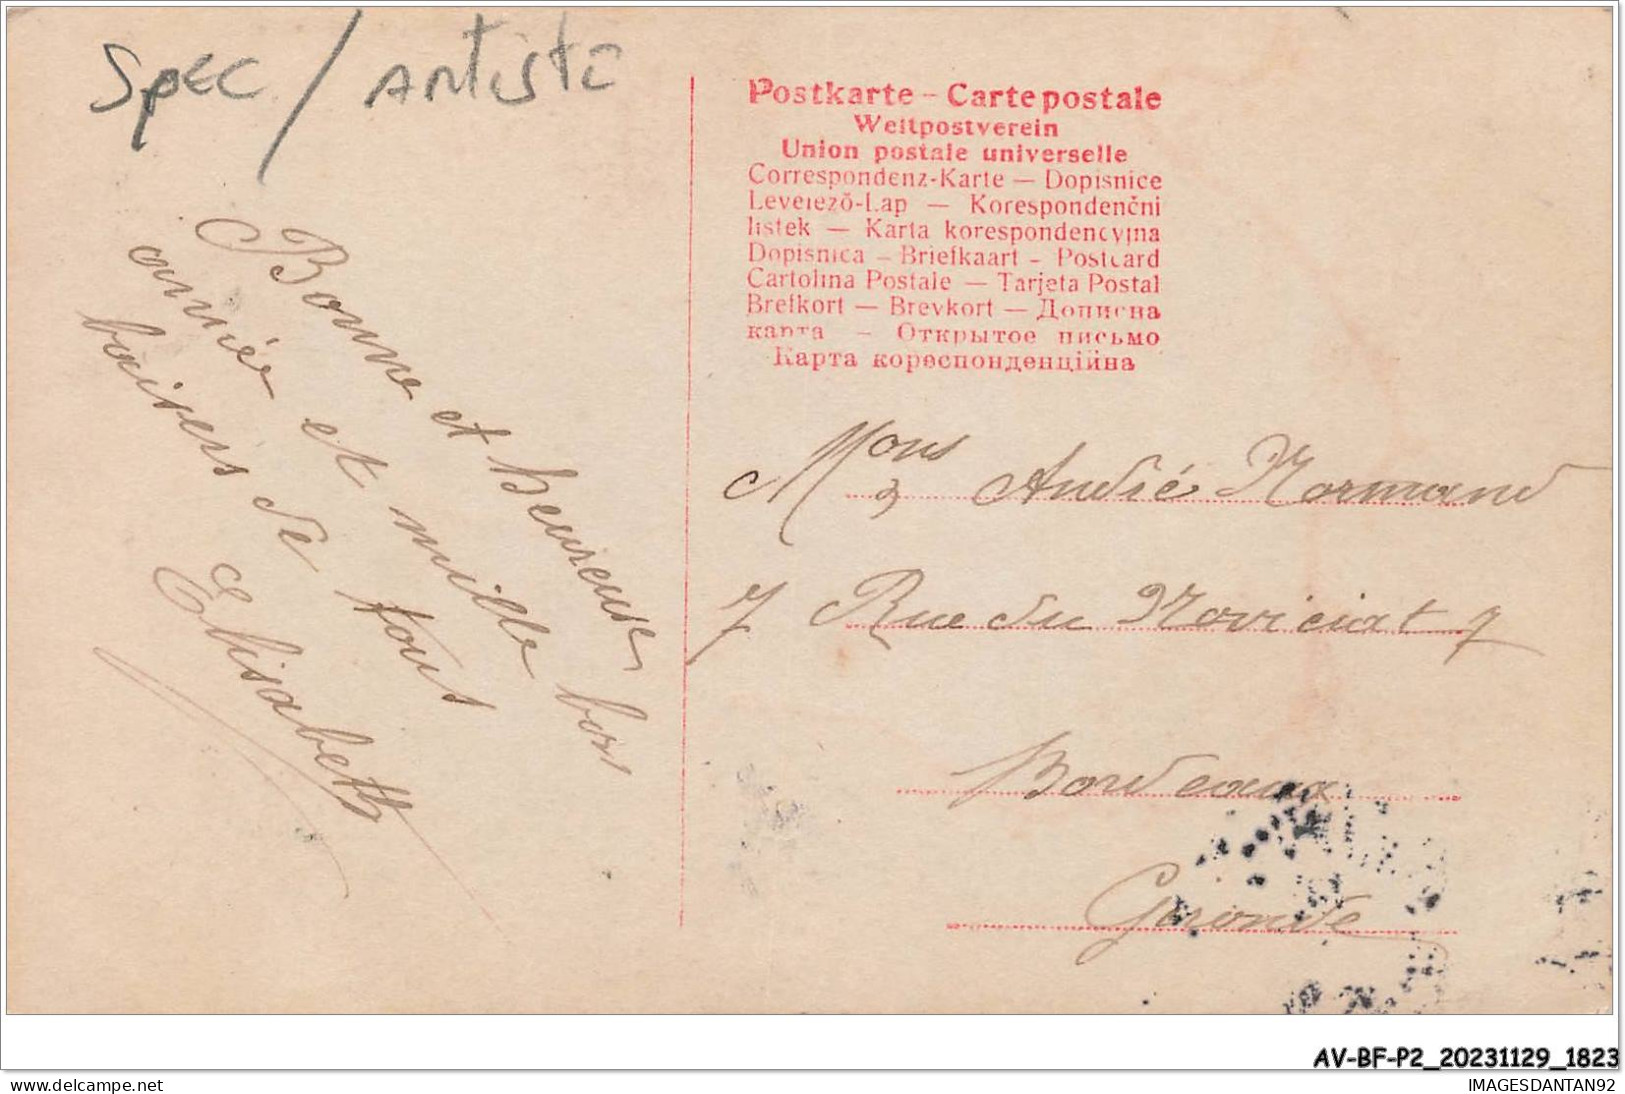 Spec / Artiste
Postkarte - Carte postale
Weltpostverein
Union postale universelle
Correspondenz-Karte — Dopisnice
Levelező-Lap — Korespondenční
listek — Karta korespondencyjna
Dopisnica - Briefkaart - Postcard
Cartolina Postale — Tarjeta Postal
Brefkort — Brevkort — Дописна
карта - Открытое письмо
Карта кореспонденційна
Bonne et heureuse
année et mille bons
baisers de tous
Elisabeth
Mons André Normand
7 Rue du Noviciat 7
Bordeaux
Gironde
AV-BF-P2_20231129_1823
www.delcampe.net
IMAGESDANTAN92